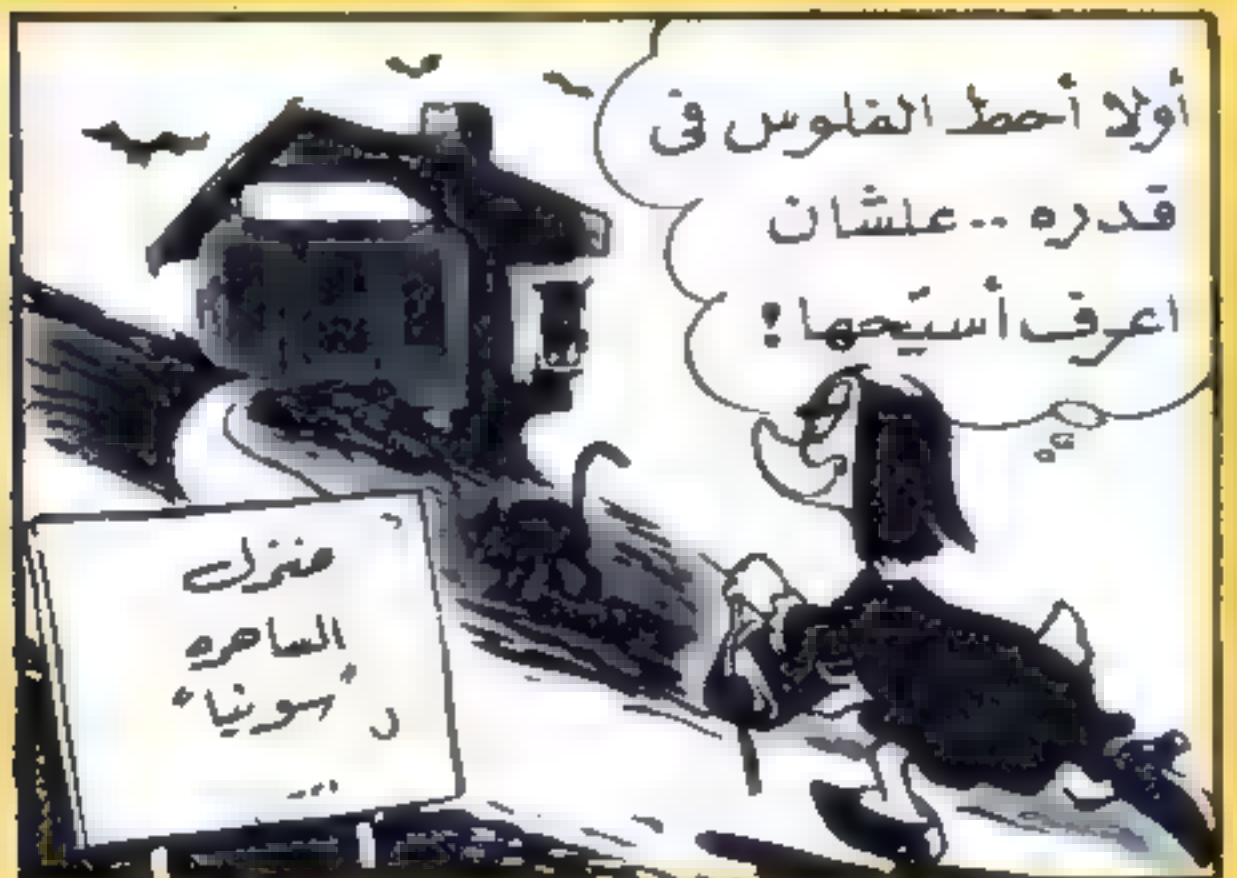 أولا أحط الفلوس فى
قدره .. علشان
اعرف أسيّحها !
منزل
الساحره
"سونيا"